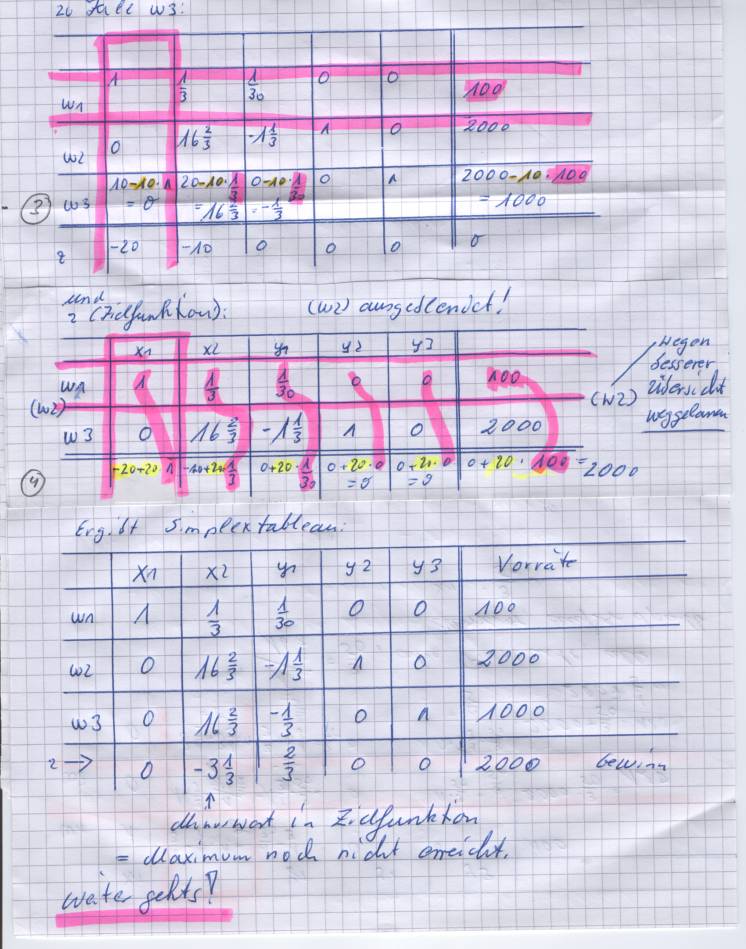 zu Zeile w3:
w1 1 1/3 1/30 0 0 100
w2 0 16 2/3 -1 1/3 1 0 2000
10-10·1 20-10·1/3 0-10·1/30 0 1 2000-10·100
③ w3 = 0 = 16 2/3 = -1/3 = 1000
z -20 -10 0 0 0 0
und
z (Zielfunktion): (w2) ausgeblendet!
x1 x2 y1 y2 y3
w1 1 1/3 1/30 0 0 100
(w2) (w2) wegen
besserer
Übersicht
weggelassen
w3 0 16 2/3 -1 1/3 1 0 2000
④ -20+20·1 -10+20·1/3 0+20·1/30 0+20·0 0+20·0 0+20·100 = 2000
= 0 = 0
Ergibt Simplextableau:
x1 x2 y1 y2 y3 Vorräte
w1 1 1/3 1/30 0 0 100
w2 0 16 2/3 -1 1/3 1 0 2000
w3 0 16 2/3 -1/3 0 1 1000
z → 0 -3 1/3 2/3 0 0 2000 Gewinn
↑
Minuswert in Zielfunktion
= Maximum noch nicht erreicht.
Weiter gehts!